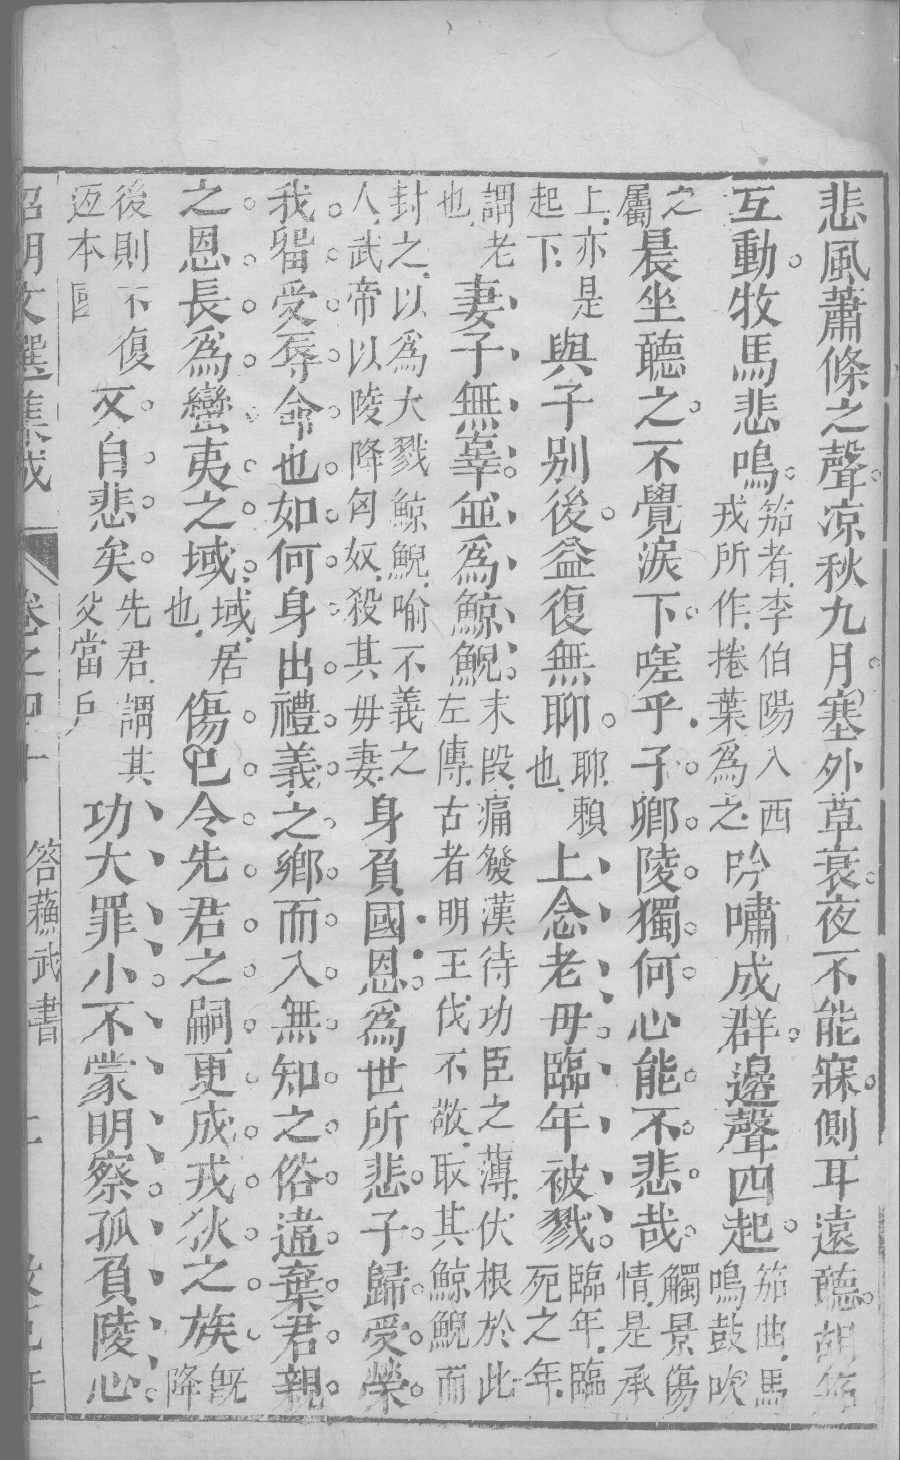 悲風蕭條之聲凉秋九月塞外草衰夜不能寐側耳遠聽胡笳
互動牧馬悲鳴笳者李伯陽入西戎所作捲葉爲之吟嘯成群邊聲四起笳曲馬鳴鼓吹
之屬晨坐聽之不覺淚下嗟乎子卿陵獨何心能不悲哉觸景傷情是承
上亦是起下與子别後益復無聊聊賴也上念老母臨年被戮臨年臨死之年
謂老也妻子無辜並爲鯨鯢末段痛發漢待功臣之薄伏根於此左傳古者明王伐不敬取其鯨鯢而
封之以爲大戮鯨鯢喻不義之人武帝以陵降匈奴殺其母妻身負國恩爲世所悲子歸受榮
我留受辱命也如何身出禮義之鄉而入無知之俗違棄君親
之恩長爲蠻夷之域域居也傷已令先君之嗣更成戎狄之族旣降
後則不復返本國又自悲矣先君謂其父當戶功大罪小不蒙明察孤負陵心
昭明文選集成 卷之四十 答蘇武書